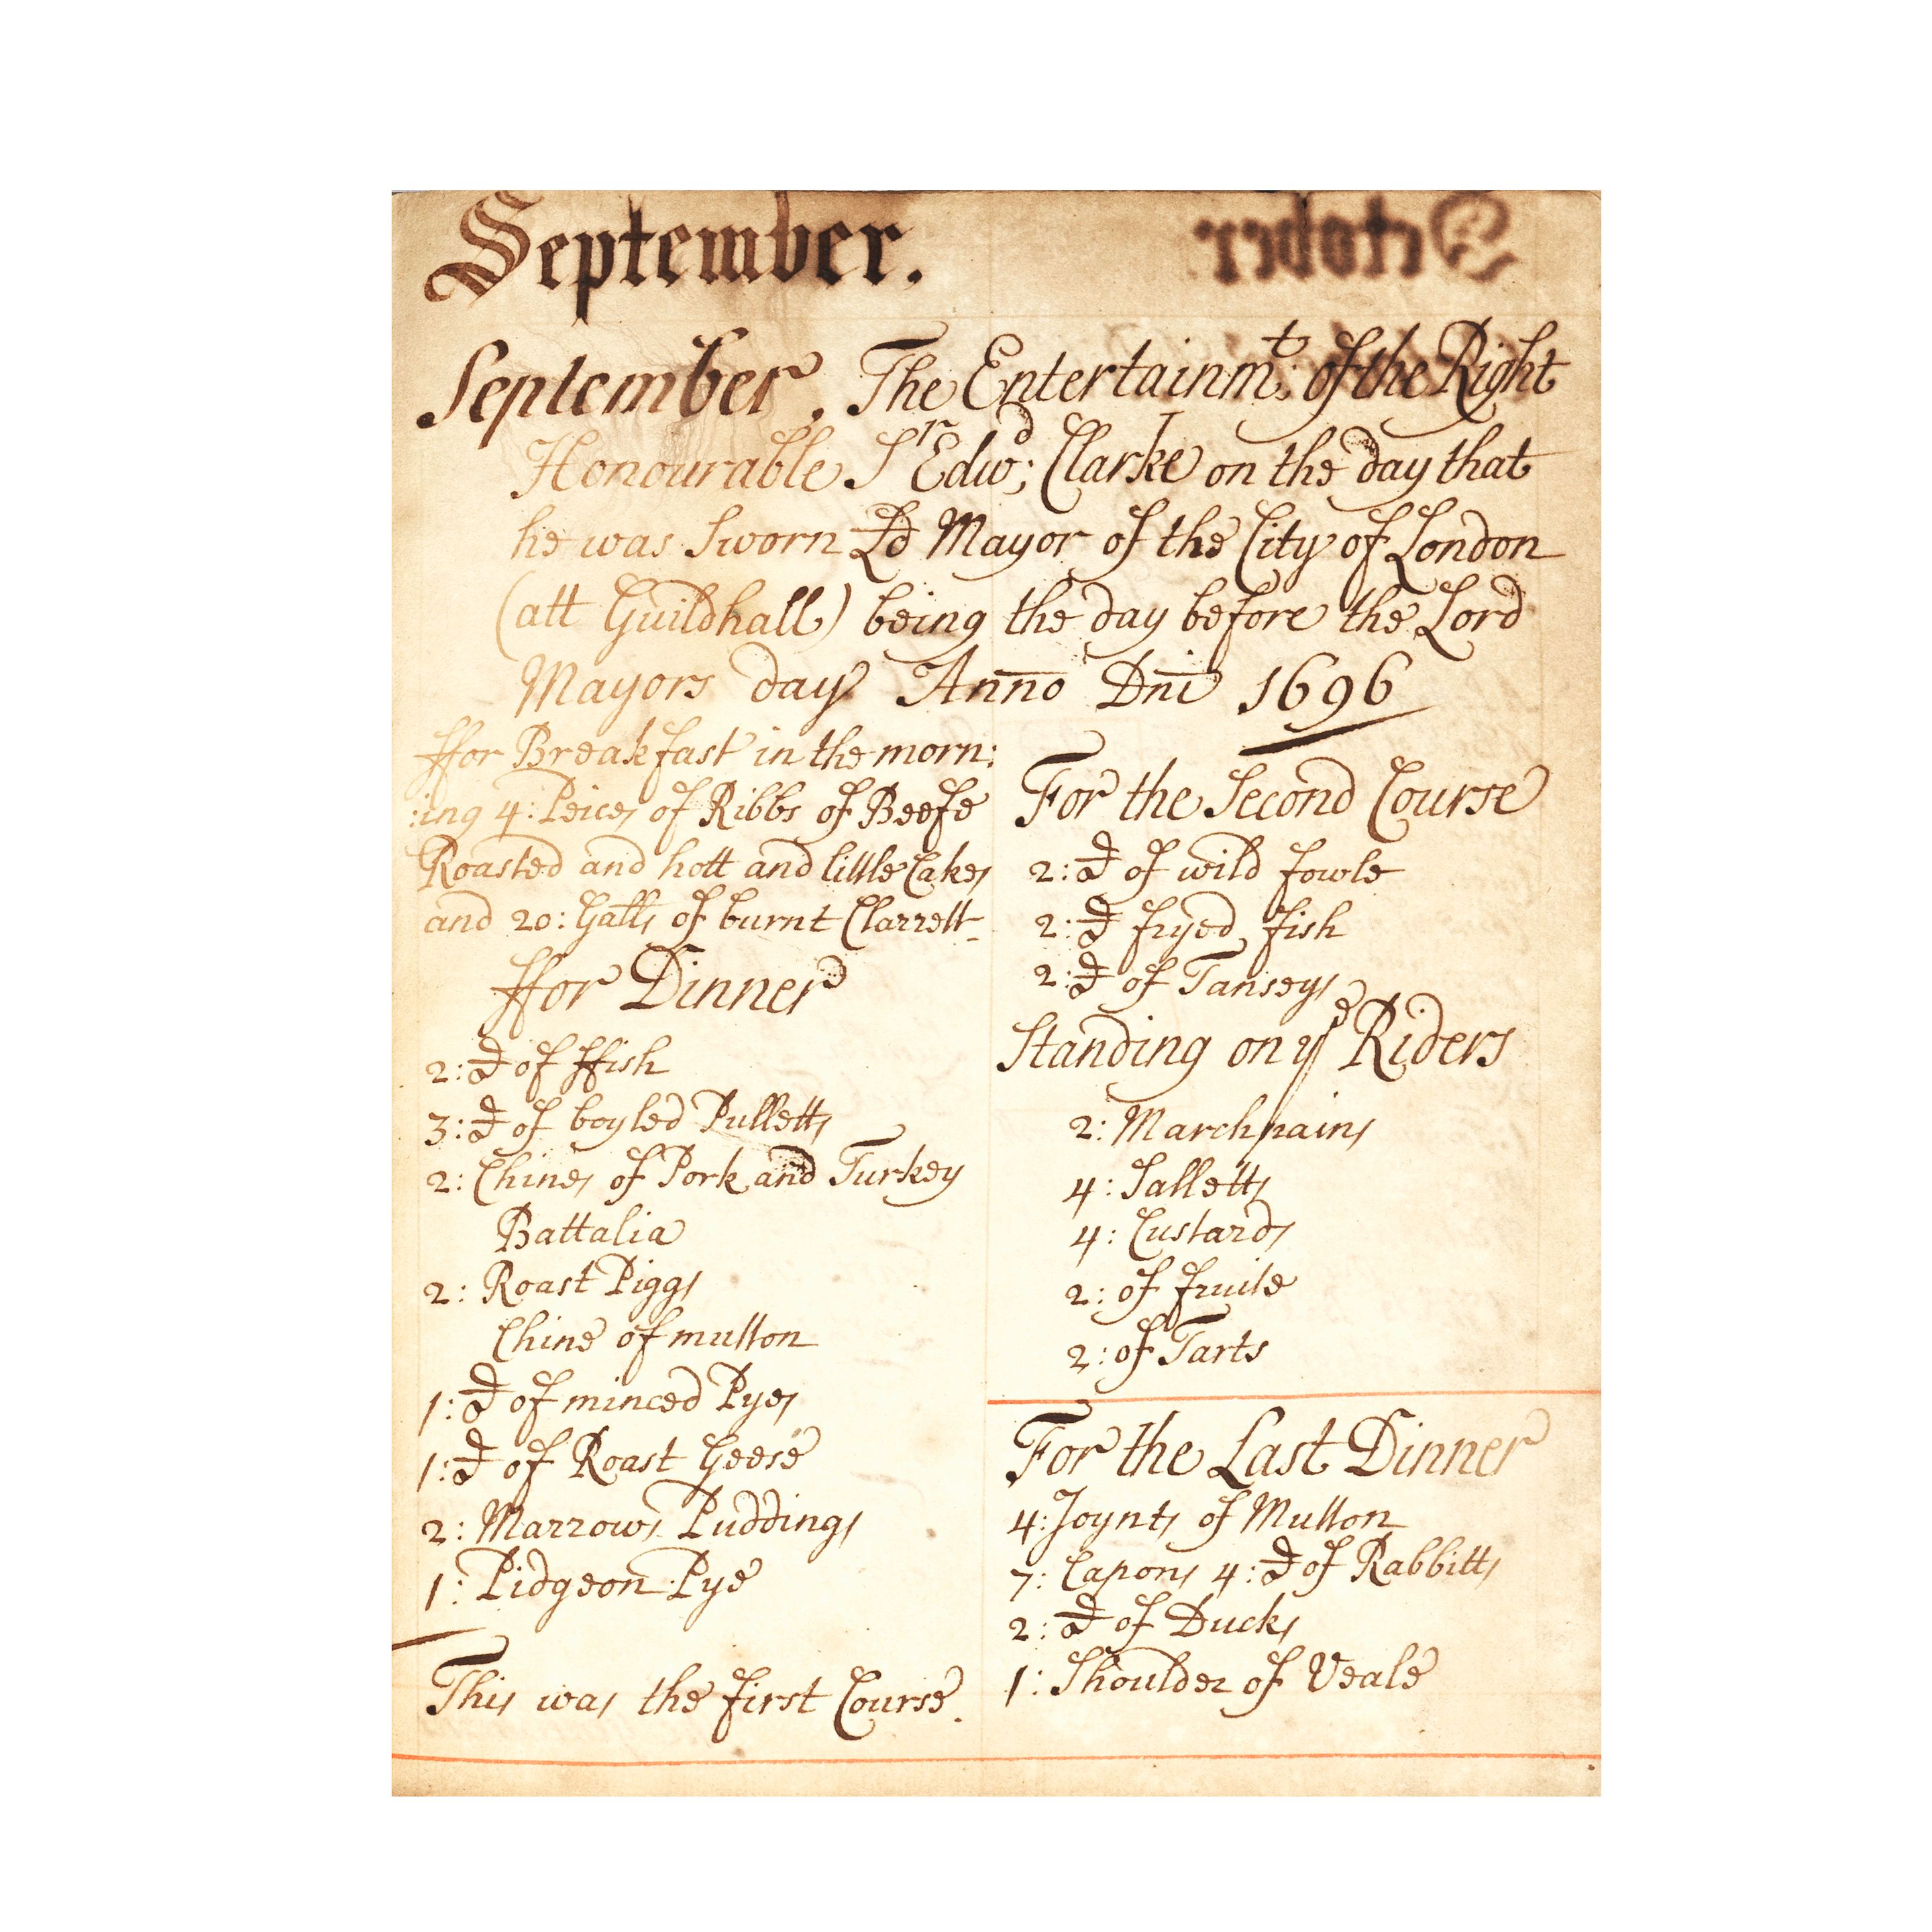 September.
September. The Entertainmt: of the Right
Honourable Sr Edwd; Clarke on the day that
he was Sworn Ld Mayor of the City of London
(att Guildhall) being the day before the Lord
Mayors day Anno Dni 1696
ffor Breakfast in the morn:
:ing 4: Peices of Ribbs of Beefe
Roasted and hott and little Cakes
and 20: Galls of burnt Clarrett
ffor Dinner
2: d of ffish
3: d of boyled Pulletts
2: Chines of Pork and Turkey
Battalia
2: Roast Piggs
Chine of mutton
1: d of minced Pyes
1: d of Roast Geese
2: Marrows Puddings
1: Pidgeon Pye
This was the first Course.
For the Second Course
2: d of wild fowle
2: d fryed fish
2: d of Tanseys
Standing on ye Riders
2: Marchpains
4: Salletts
4: Custards
2: of fruite
2: of Tarts
For the Last Dinner
4: Joynts of Mutton
7: Capons 4: d of Rabbitts
2: d of Ducks
1: Shoulder of Veale